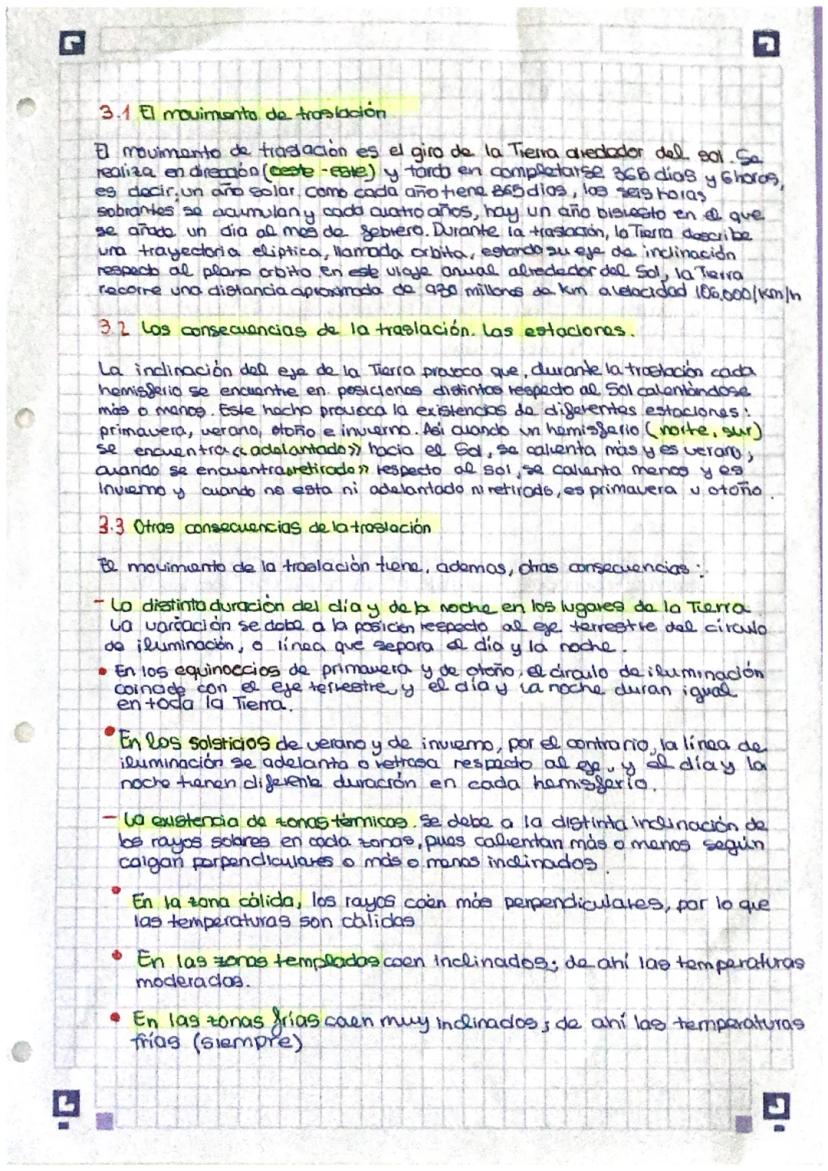 3.1 El movimiento de traslación
El movimiento de traslación es el giro de la Tierra alrededor del sol. Se
realiza en dirección (oeste - este) y tarda en completarse 365 días y 6 horas,
es decir, un año solar. Como cada año tiene 365 días, las seis horas
sobrantes se acumulan y cada cuatro años, hay un año bisiesto en el que
se añade un día al mes de febrero. Durante la traslación, la Tierra describe
una trayectoria elíptica, llamada órbita, estando su eje de inclinación
respecto al plano orbita en este viaje anual alrededor del Sol, la Tierra
recorre una distancia aproximada de 930 millones de km a velocidad 106.000/km/h
3.2 Las consecuencias de la traslación. Las estaciones.
La inclinación del eje de la Tierra provoca que, durante la traslación cada
hemisferio se encuentre en posiciones distintas respecto al Sol calentándose
más o menos. Este hecho provoca la existencias de diferentes estaciones:
primavera, verano, otoño e invierno. Así cuando un hemisferio (norte, sur)
se encuentra «adelantado» hacia el Sol, se calienta más y es verano;
cuando se encuentra «retirado» respecto al sol, se calienta menos y es
invierno y cuando no esta ni adelantado ni retirado, es primavera u otoño.
3.3 Otras consecuencias de la traslación
El movimiento de la traslación tiene, ademas, otras consecuencias:
- La distinta duración del día y de la noche en los lugares de la Tierra.
La variación se debe a la posición respecto al eje terrestre del círculo
de iluminación, o línea que separa el día y la noche.
• En los equinoccios de primavera y de otoño, el círculo de iluminación
coincide con el eje terrestre, y el día y la noche duran igual
en toda la Tierra.
• En los solsticios de verano y de invierno, por el contrario, la línea de
iluminación se adelanta o retrasa respecto al eje, y el día y la
noche tienen diferente duración en cada hemisferio.
- La existencia de zonas térmicas. Se debe a la distinta inclinación de
los rayos solares en cada zonas, pues calientan más o menos según
caigan perpendiculares o más o menos inclinados.
• En la zona cálida, los rayos caen más perpendiculares, por lo que
las temperaturas son cálidas
• En las zonas templadas caen inclinados; de ahí las temperaturas
moderadas.
• En las zonas frías caen muy inclinados; de ahí las temperaturas
frías (siempre)